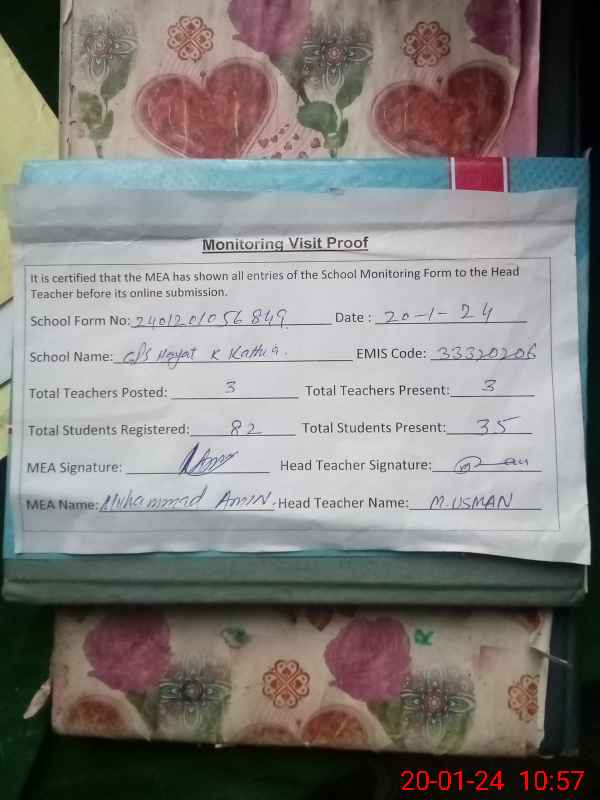 Monitoring Visit Proof
It is certified that the MEA has shown all entries of the School Monitoring Form to the Head
Teacher before its online submission.
School Form No: 2401201056849 Date : 20-1-24
School Name: GPS Hayat K Kathia. EMIS Code: 33320206
Total Teachers Posted: 3 Total Teachers Present: 3
Total Students Registered: 82 Total Students Present: 35
MEA Signature: Head Teacher Signature:
MEA Name: Muhammad AMIN. Head Teacher Name: M.USMAN
R
20-01-24 10:57